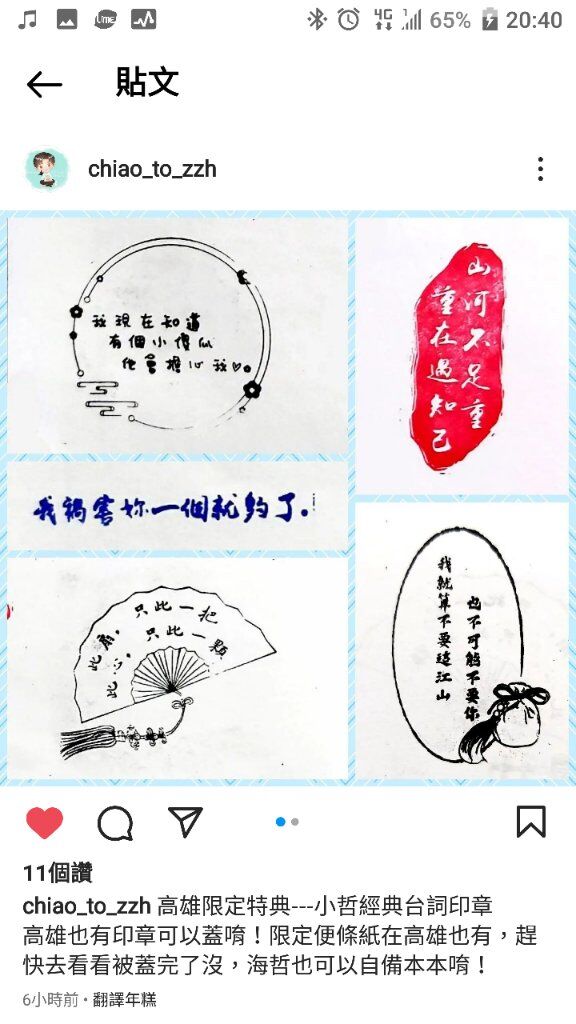 4G 65% 20:40
貼文
chiao_to_zzh
我現在知道
有個小傻瓜
他會擔心我♡
山河不足重
重在遇知己
我禍害妳一個就夠了.
此扇，只此一把
此心，只此一顆
我就算不要這江山
也不可能不要你
11個讚
chiao_to_zzh 高雄限定特典---小哲經典台詞印章
高雄也有印章可以蓋唷！限定便條紙在高雄也有，趕
快去看看被蓋完了沒，海哲也可以自備本本唷！
6小時前 • 翻譯年糕